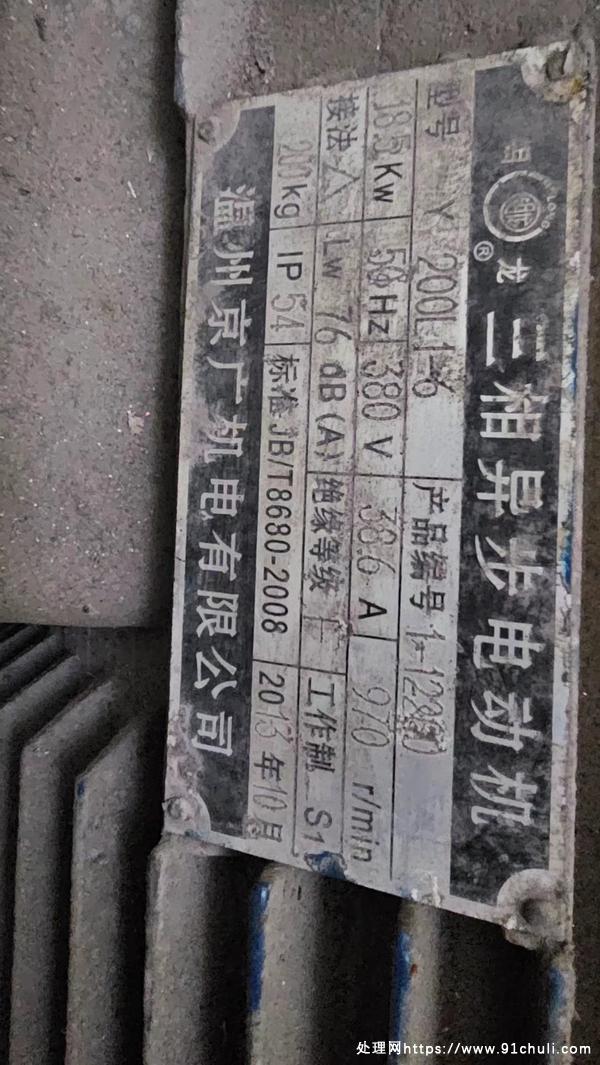 龙®
三相异步电动机
型号 Y 200L1-6 产品编号 1-12
18.5 Kw 50 Hz 380 V 38.6 A 970 r/min
接法 Lw 76 dB(A) 绝缘等级 工作制 S1
200 kg IP 54 标准JB/T8680-2008 2013年10月
温州京广机电有限公司
处理网https://www.91chuli.com